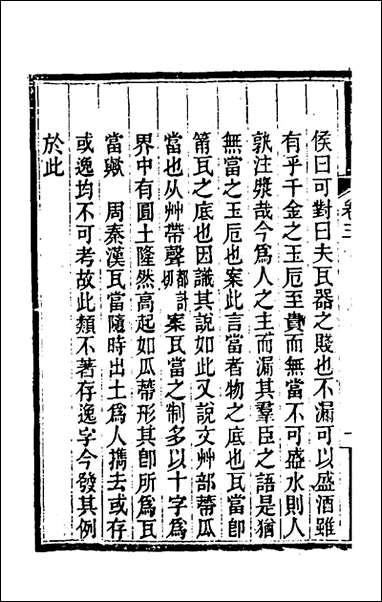 侯曰可對曰夫瓦器之賤也不漏可以盛酒雖
有乎千金之玉卮至貴而無當不可盛水則人
孰注漿哉今爲人之主而漏其羣臣之語是猶
無當之玉卮也案此言當者物之底也瓦當卽
筩瓦之底也因識其說如此又說文艸部蔕瓜
當也从艸帶聲都計切案瓦當之制多以十字爲
界中有圓土隆然高起如瓜蔕形其卽所爲瓦
當歟　周秦漢瓦當隨時出土爲人攜去或存
或逸均不可考故此類不著存逸字今發其例
於此
卷三